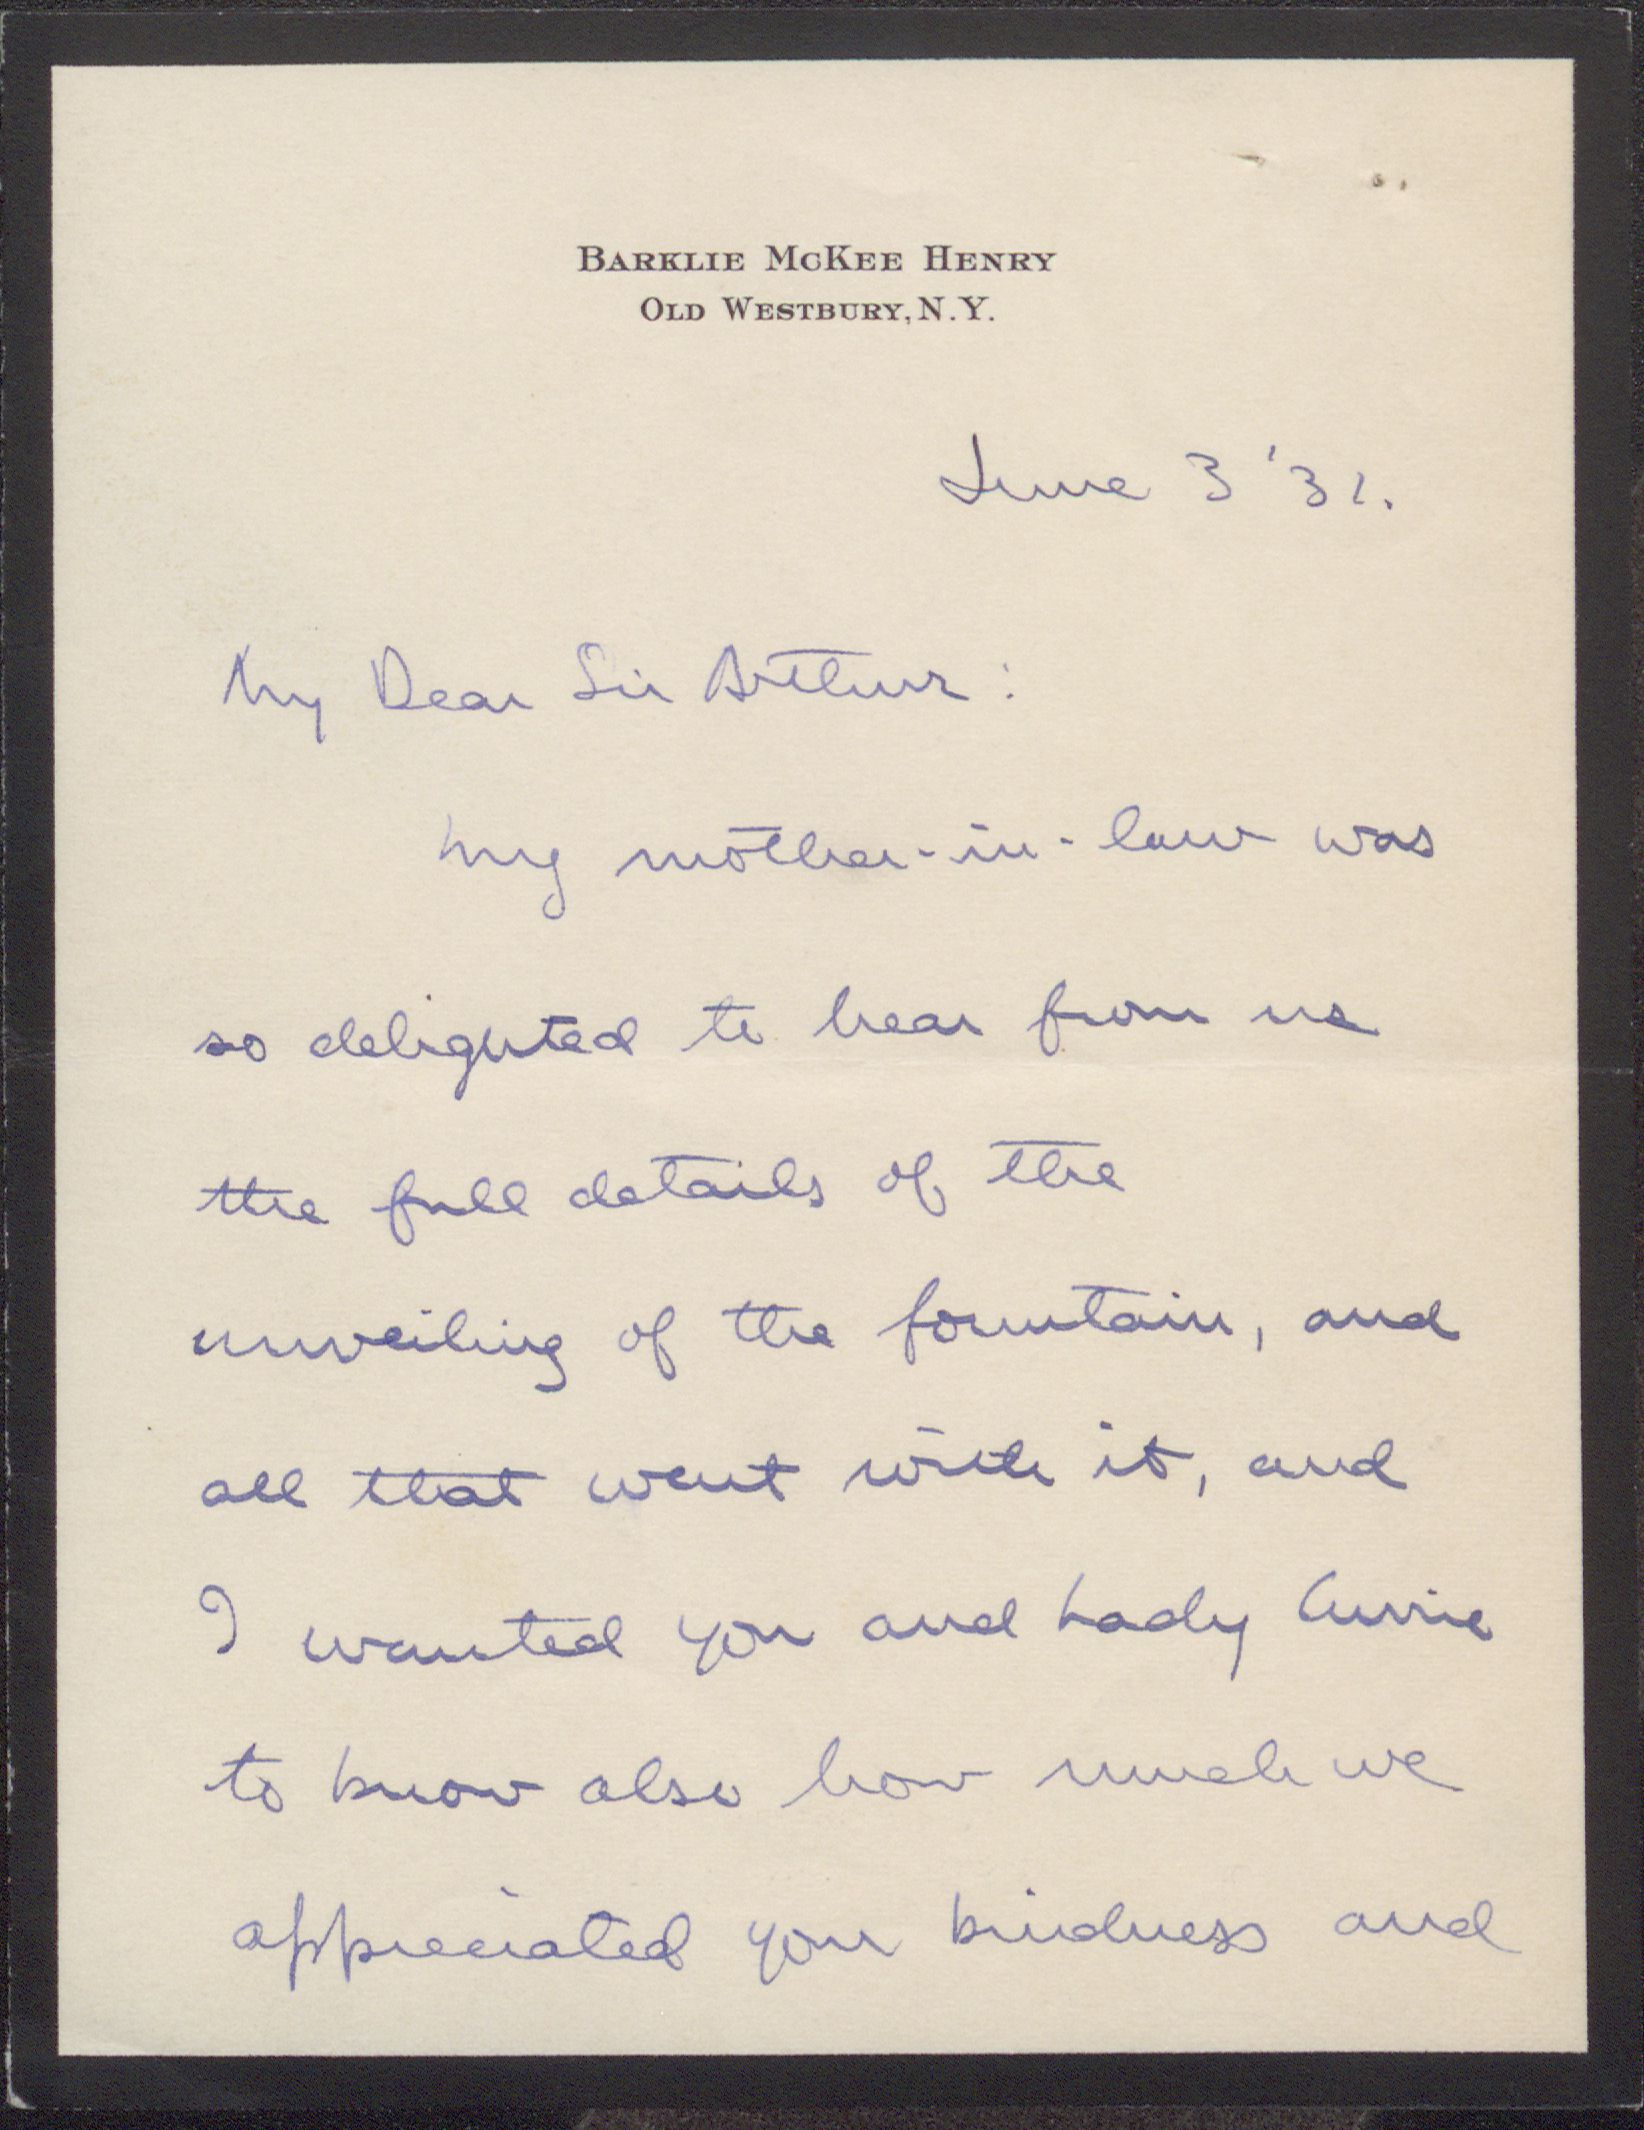 BARKLIE MCKEE HENRY
OLD WESTBURY, N.Y.
June 3 '31.
My Dear Sir Arthur:
My mother-in-law was
so delighted to hear from us
the full details of the
unveiling of the fountain, and
all that went with it, and
I wanted you and Lady Currie
to know also how much we
appreciated your kindness and